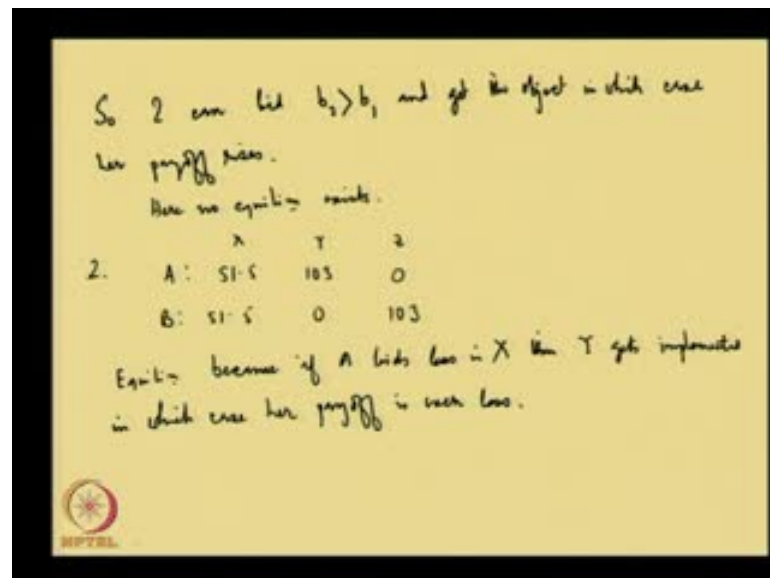 So 2 can bid b₂>b₁ and get the object in which case
her payoff rises.
Here no equilibrium exists.
X Y Z
2. A: 51.5 103 0
B: 51.5 0 103
Equilibrium because if A bids less in X then Y gets implemented
in which case her payoff is even less.
NPTEL